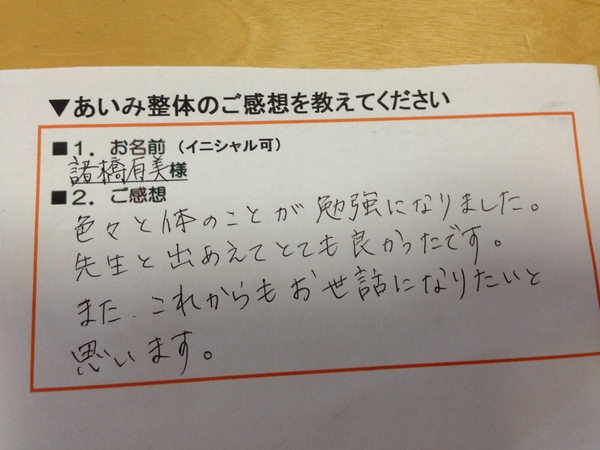 ▼あいみ整体のご感想を教えてください
■1．お名前（イニシャル可）
諸橋有美様
■2．ご感想
色々と体のことが勉強になりました。
先生と出あえてとても良かったです。
また、これからもお世話になりたいと
思います。